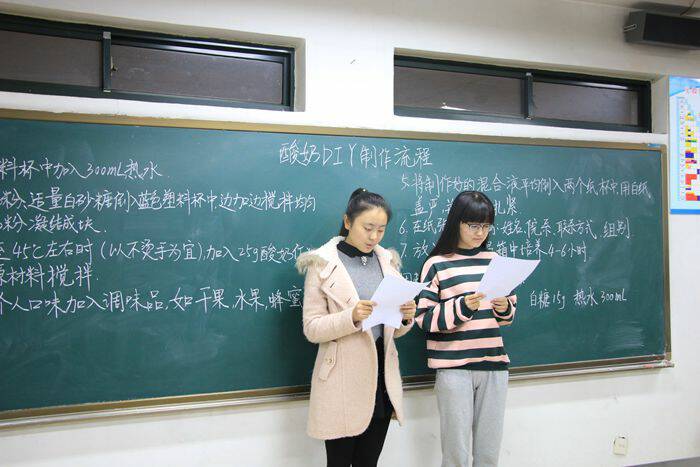 酸奶DIY制作流程
料杯中加入300mL热水
粉、适量白砂糖倒入蓝色塑料杯中边加边搅拌均匀
粉凝结成块.
至45℃左右时(以不烫手为宜),加入25g酸奶
原材料搅拌.
个人口味加入调味品,如干果,水果,蜂蜜
5.将制作好的混合液平均倒入两个纸杯中,用白纸
盖严
扎紧
6.在纸
姓名,院系,联系方式,组别
7.放入
箱中培养4-6小时
白糖15g 热水300mL